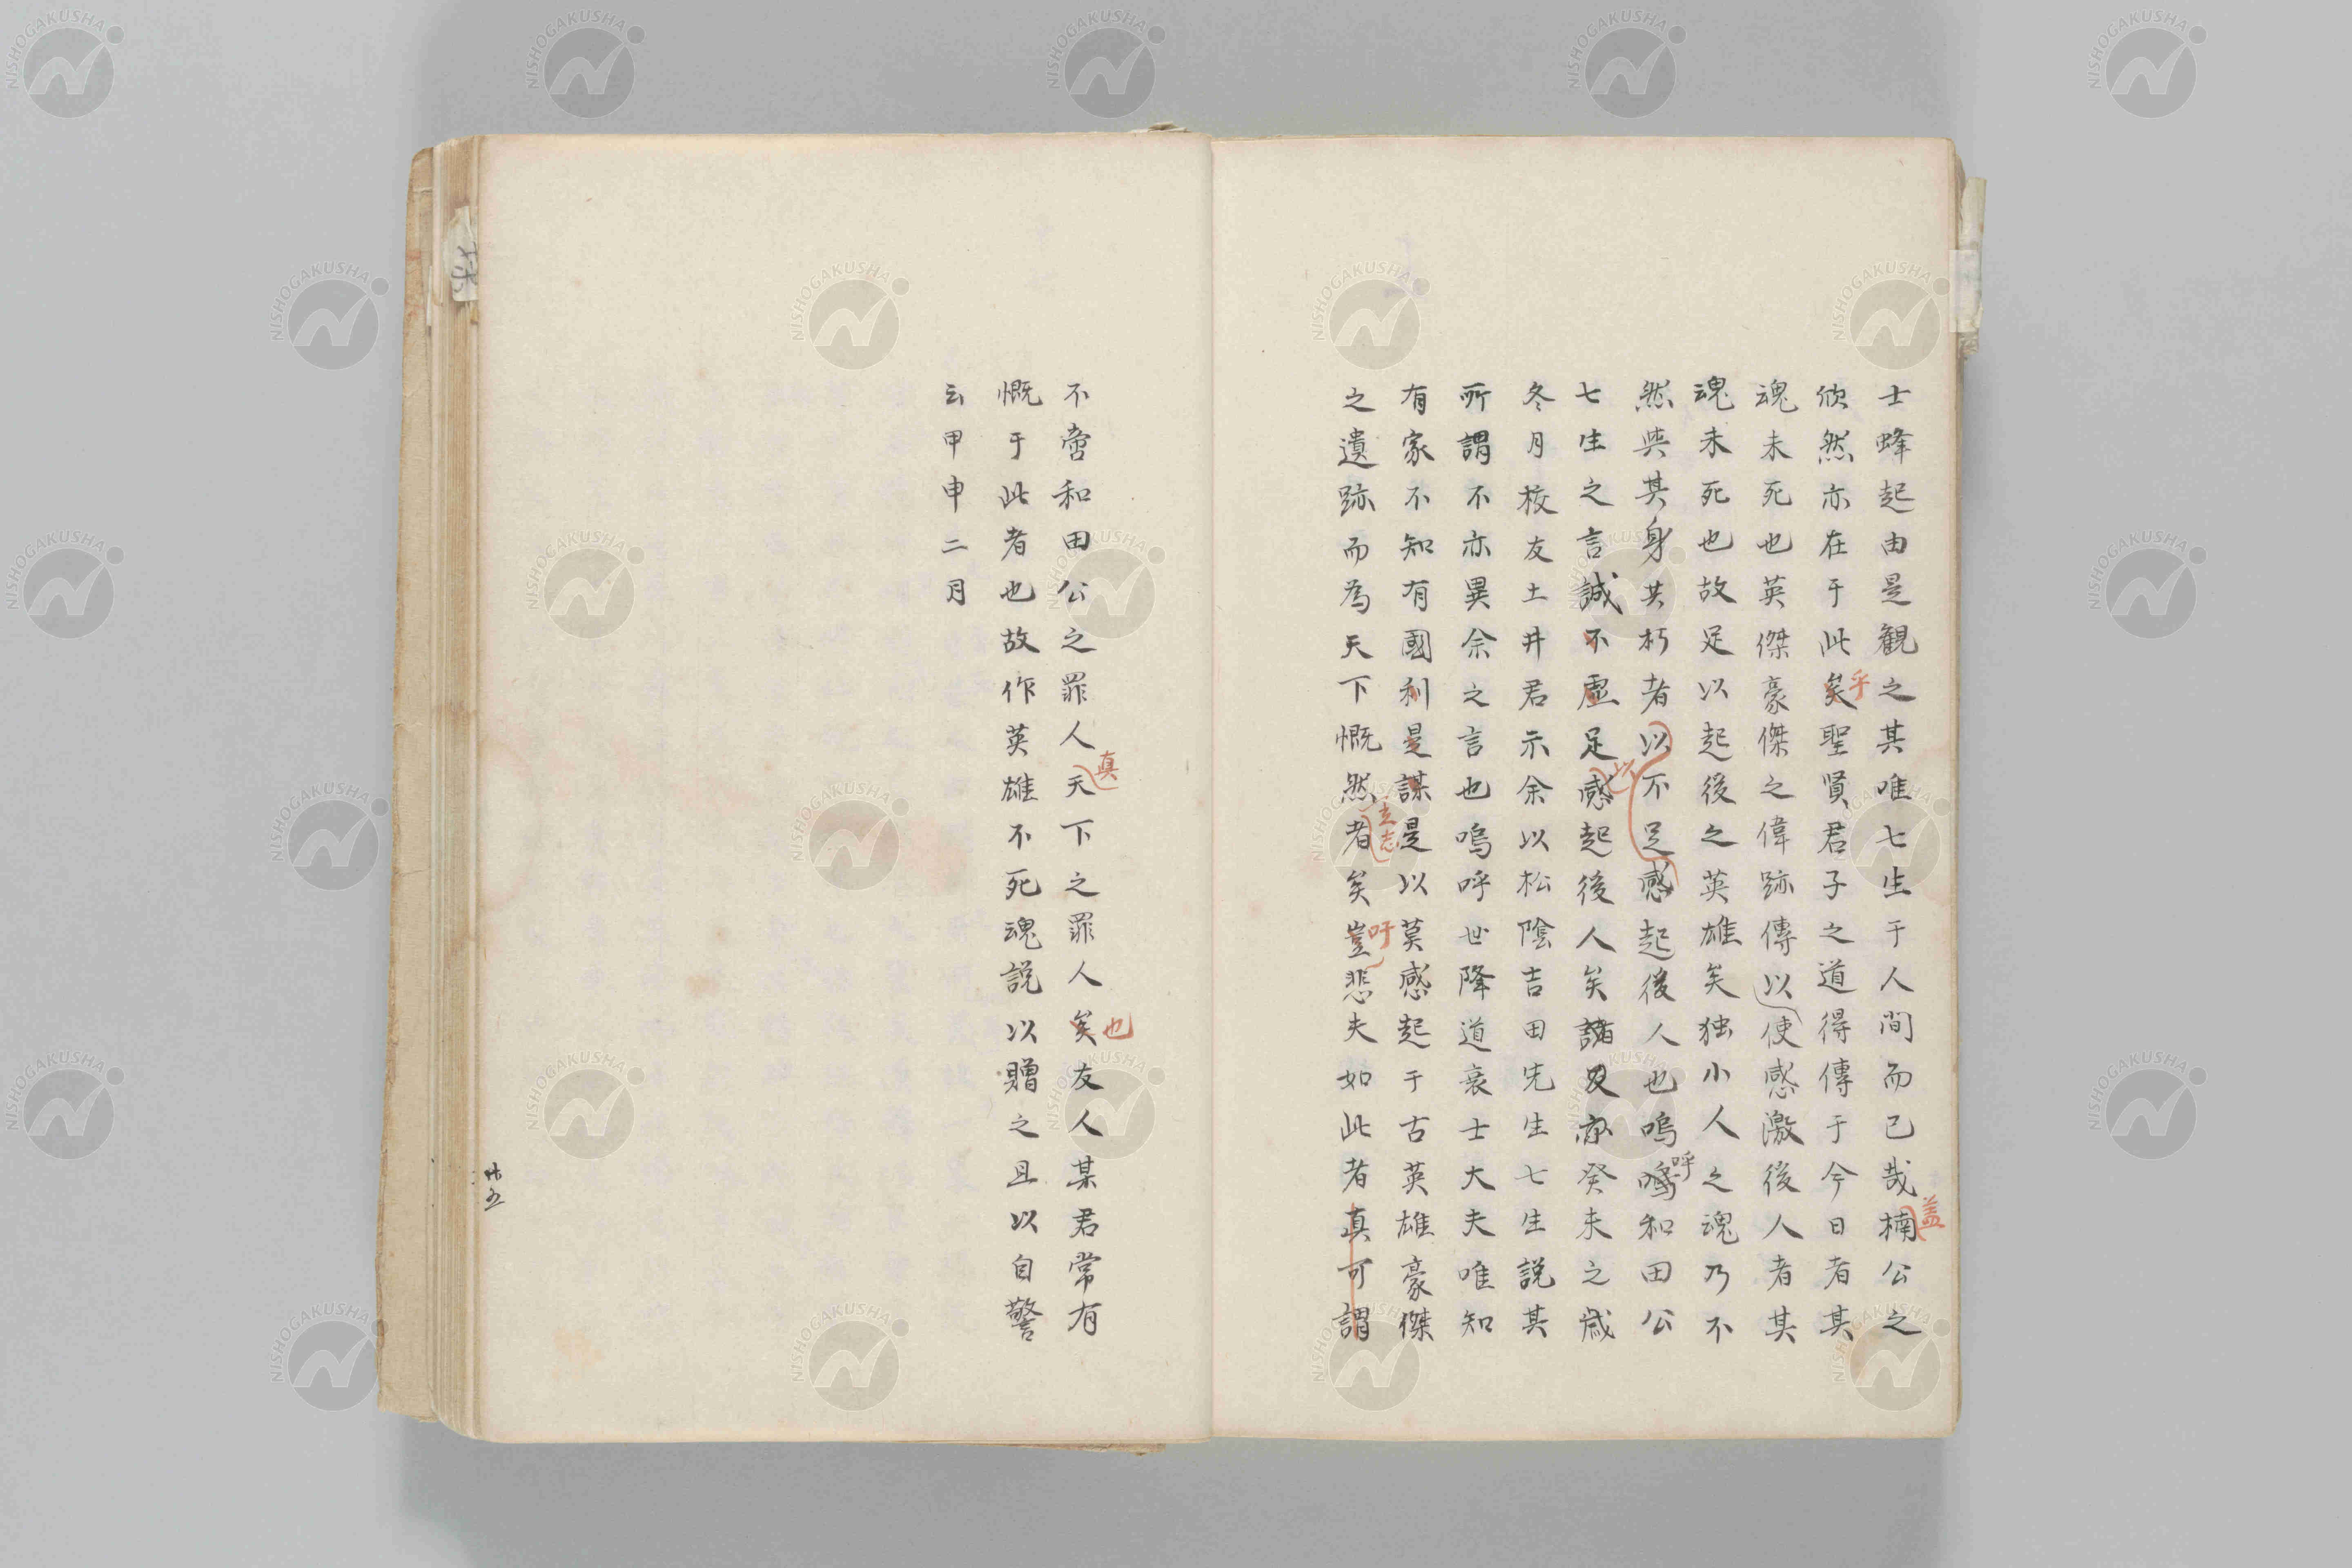 士蜂起由是観之其唯七生于人間而已哉楠公之
蓋
欣然亦在于此矣聖賢君子之道得傳于今日者其
乎
魂未死也英傑豪傑之偉跡傳以使感激後人者其
魂未死也故足以起後之英雄矣独小人之魂乃不
然與其身共朽者以不足感起後人也嗚呼和田公
七生之言誠不虚足感起後人矣諸友亦癸未之歳
以
冬月校友土井君示余以松陰吉田先生七生説其
所謂不亦異余之言也嗚呼世降道衰士大夫唯知
有家不知有國利是謀是以莫感起于古英雄豪傑
之遺跡而為天下慨然者矣豈悲夫如此者真可謂
立志
吁
不啻和田公之罪人天下之罪人矣友人某君常有
真
也
慨于此者也故作英雄不死魂説以贈之且以自警
云甲申二月
廿五
NISHOGAKUSHA